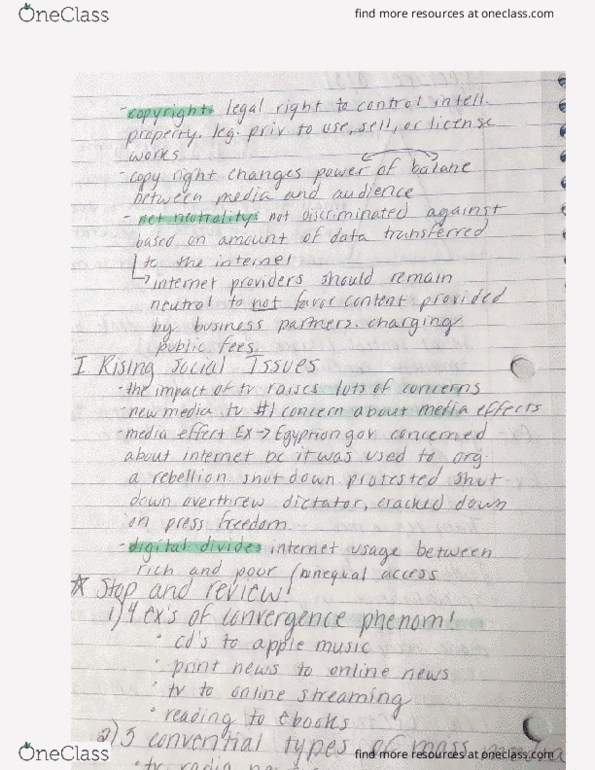 OneClass
find more resources at oneclass.com
- copyright: legal right to control intell.
property. leg. priv to use, sell, or license
works
- copy right changes power of balane
between media and audience
- net neutrality: not discriminated against
based on amount of data transferred
to the internet
internet providers should remain
neutral to not favor content provided
by business partners. charging
public fees.
I Rising Social Issues
- the impact of tv raises lots of concerns
- new media tv #1 concern about media effects
- media effect Ex → Egyption gov concerned
about internet bc it was used to org.
a rebellion shut down protested shut
down overthrew dictator, cracked down
on press freedom.
- digital divides internet usage between
rich and poor / unequal access
☆ Stop and review!
1) 4 ex's of convergence phenom!
• cd's to apple music
• print news to online news
• tv to online streaming
• reading to Ebooks
2) 5 convential types of mass
OneClass
find more resources at oneclass.com
• tv radio